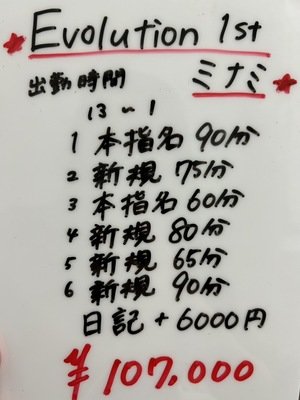 Evolution 1st
ミナミ
出勤時間
13~1
1 本指名 90分
2 新規 75分
3 本指名 60分
4 新規 80分
5 新規 65分
6 新規 90分
日記+6000円
¥107.000